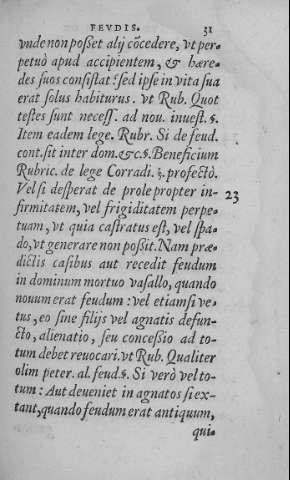 FEVDIS. 31
vnde non posset alij cōcedere, vt per-
petuò apud accipientem, & hære-
des suos consistat: sed ipse in vita sua
erat solus habiturus. vt Rub. Quot
testes sunt necess. ad nou. inuest. §.
Item eadem lege. Rubr. Si de feud.
cont. sit inter dom. &c. §. Beneficium
Rubric. de lege Corradi. §. profectò.
Vel si desperat de prole propter in- 23
firmitatem, vel frigiditatem perpe-
tuam, vt quia castratus est, vel spa-
do, vt generare non possit. Nam præ-
dictis casibus aut recedit feudum
in dominum mortuo vasallo, quando
nouum erat feudum: vel etiamsi ve-
tus, eo sine filijs vel agnatis defun-
cto, alienatio, seu concessio ad to-
tum debet reuocari. vt Rub. Qualiter
olim peter. al. feud. §. Si verò vel to-
tum: Aut deueniet in agnatos si ex-
tant, quando feudum erat antiquum,
qui-